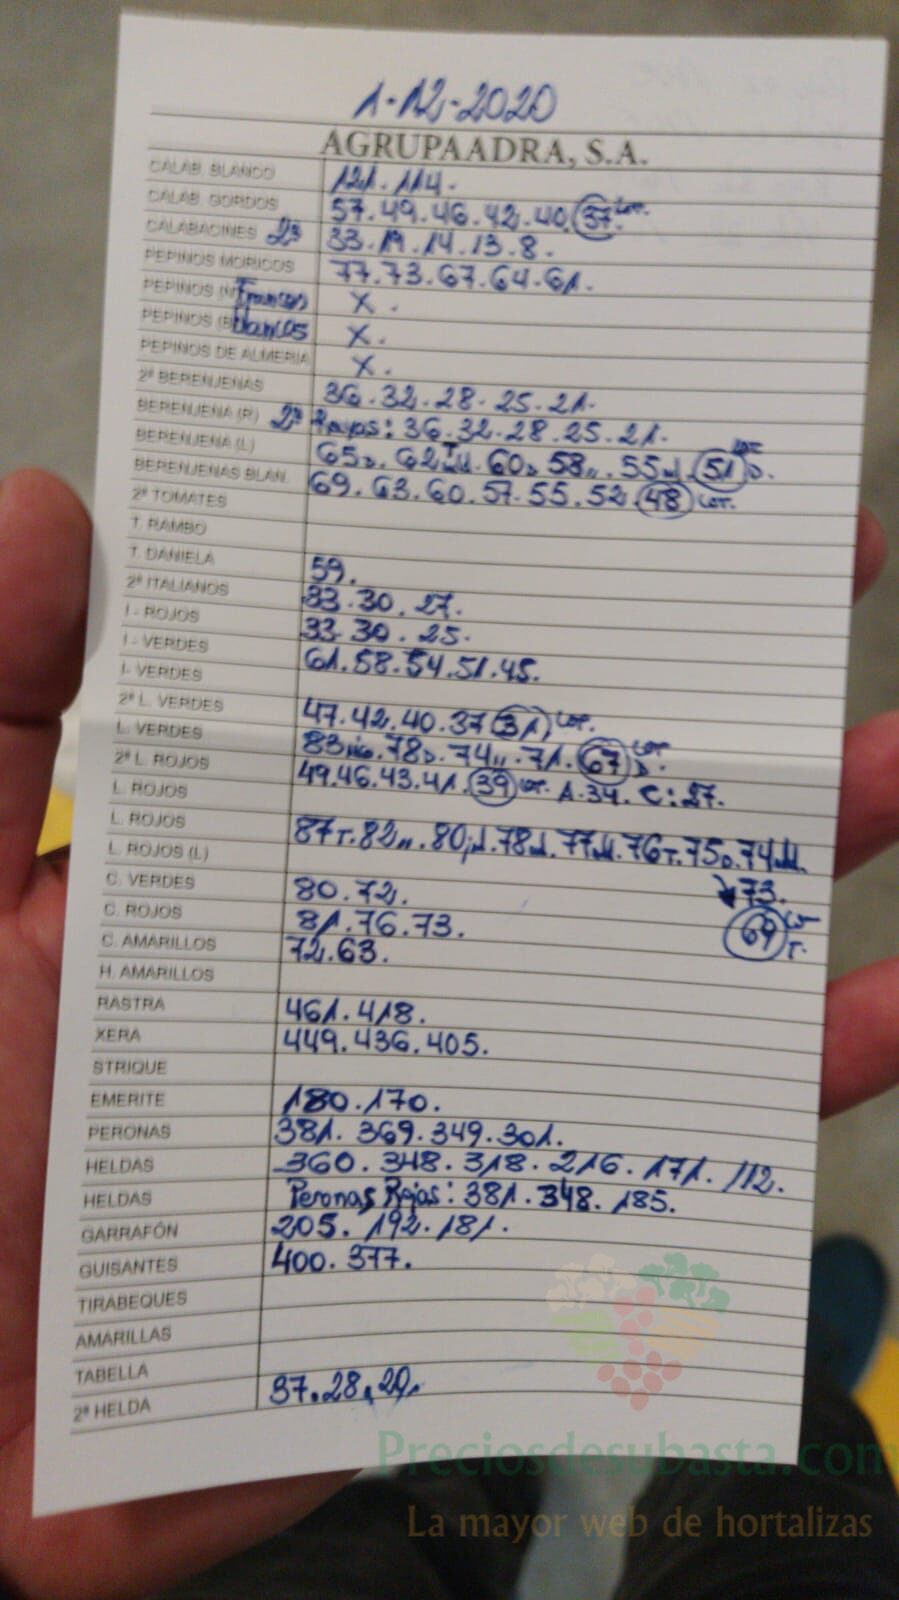 1-12-2020
AGRUPAADRA, S.A.
CALAB. BLANCO 121.114.
CALAB. GORDOS 57.49.46.42.40.(37) cor.
CALABACINES 2ª 33.19.14.13.8.
PEPINOS MORICOS 77.73.67.64.61.
PEPINOS (N) Franceses X.
PEPINOS (B) blancos X.
PEPINOS DE ALMERIA X.
2ª BERENJENAS 36.32.28.25.21.
BERENJENA (R) 2ª Rayas: 36.32.28.25.21.
BERENJENA (L) 65D. 62 60D 58,, .55 (51) D. cor
BERENJENAS BLAN. 69.63.60.57.55.52.(48) cor.
2ª TOMATES
T. RAMBO
T. DANIELA 59.
2ª ITALIANOS 33.30.27.
I - ROJOS 33.30.25.
I - VERDES 61.58.54.51.45.
I. VERDES
2ª L. VERDES 47.42.40.37(31) cor.
L. VERDES 83 .78D.74,,.71.(67) D. cor
2ª L. ROJOS 49.46.43.41.(39) cor. A.34. C:27.
L. ROJOS
L. ROJOS 87T.82,,.80 .78 .77 .76T.75D.74
L. ROJOS (L) 73.
C. VERDES 80.72.
C. ROJOS 81.76.73. (69) T.
C. AMARILLOS 72.63.
H. AMARILLOS
RASTRA 461.418.
XERA 449.436.405.
STRIQUE
EMERITE 180.170.
PERONAS 381.369.349.301.
HELDAS 360.348.318.216.171.112.
HELDAS Peronas Rojas: 381.348.185.
GARRAFÓN 205.192.181.
GUISANTES 400.377.
TIRABEQUES
AMARILLAS
TABELLA
2ª HELDA 37.28.20.
Preciosdesubasta.com
La mayor web de hortalizas